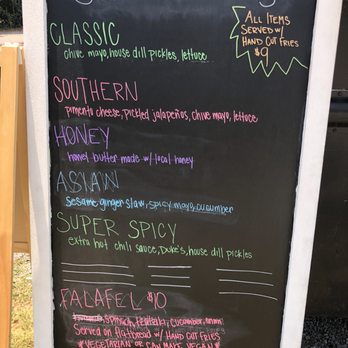 CLASSIC
chive mayo, house dill pickles, lettuce
ALL ITEMS
SERVED W/
HAND CUT FRIES
$9
SOUTHERN
pimento cheese, pickled jalapeños, chive mayo, lettuce
HONEY
honey butter made w/ local honey
ASIAN
sesame ginger slaw, spicy mayo, cucumber
SUPER SPICY
extra hot chili sauce, DUKE'S, house dill pickles
FALAFEL $10
cucumber, onion
Served on flatbread w/ HAND CUT FRIES
*VEGETARIAN OR CAN MAKE VEGAN*